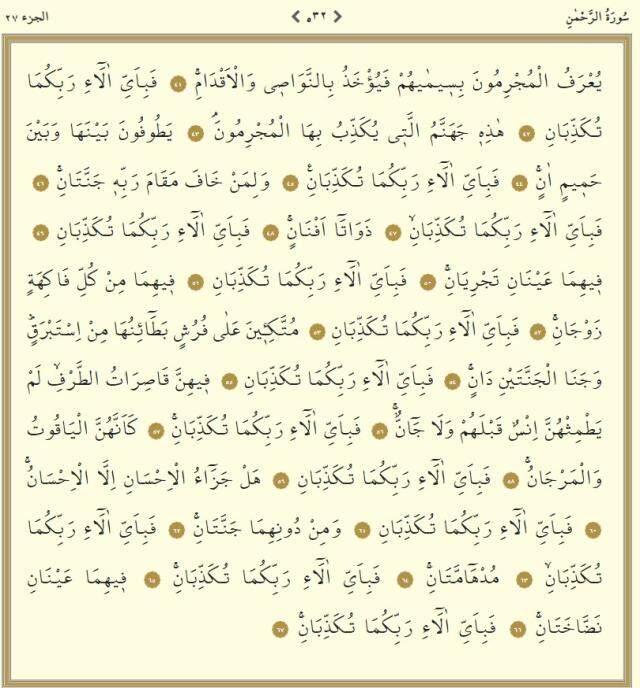 سُورَةُ الرَّحْمٰنِ ٥٣٢ الجزء ٢٧
يُعْرَفُ الْمُجْرِمُونَ بِسِيمٰيهُمْ فَيُؤْخَذُ بِالنَّوَاصِى وَالْاَقْدَامِۚ ٤١ فَبِاَىِّ اٰلَٓاءِ رَبِّكُمَا
تُكَذِّبَانِ ٤٢ هٰذِهٖ جَهَنَّمُ الَّتٖى يُكَذِّبُ بِهَا الْمُجْرِمُونَۘ ٤٣ يَطُوفُونَ بَيْنَهَا وَبَيْنَ
حَمٖيمٍ اٰنٍۚ ٤٤ فَبِاَىِّ اٰلَٓاءِ رَبِّكُمَا تُكَذِّبَانِ۟ ٤٥ وَلِمَنْ خَافَ مَقَامَ رَبِّهٖ جَنَّتَانِۚ ٤٦
فَبِاَىِّ اٰلَٓاءِ رَبِّكُمَا تُكَذِّبَانِۙ ٤٧ ذَوَاتَٓا اَفْنَانٍۚ ٤٨ فَبِاَىِّ اٰلَٓاءِ رَبِّكُمَا تُكَذِّبَانِ ٤٩
فٖيهِمَا عَيْنَانِ تَجْرِيَانِۚ ٥٠ فَبِاَىِّ اٰلَٓاءِ رَبِّكُمَا تُكَذِّبَانِ ٥١ فٖيهِمَا مِنْ كُلِّ فَاكِهَةٍ
زَوْجَانِۚ ٥٢ فَبِاَىِّ اٰلَٓاءِ رَبِّكُمَا تُكَذِّبَانِ ٥٣ مُتَّكِـٖٔينَ عَلٰى فُرُشٍ بَطَٓائِنُهَا مِنْ اِسْتَبْرَقٍؕ
وَجَنَا الْجَنَّتَيْنِ دَانٍۚ ٥٤ فَبِاَىِّ اٰلَٓاءِ رَبِّكُمَا تُكَذِّبَانِ ٥٥ فٖيهِنَّ قَاصِرَاتُ الطَّرْفِۙ لَمْ
يَطْمِثْهُنَّ اِنْسٌ قَبْلَهُمْ وَلَا جَٓانٌّۚ ٥٦ فَبِاَىِّ اٰلَٓاءِ رَبِّكُمَا تُكَذِّبَانِۚ ٥٧ كَاَنَّهُنَّ الْيَاقُوتُ
وَالْمَرْجَانُۚ ٥٨ فَبِاَىِّ اٰلَٓاءِ رَبِّكُمَا تُكَذِّبَانِ ٥٩ هَلْ جَزَٓاءُ الْاِحْسَانِ اِلَّا الْاِحْسَانُۚ
٦٠ فَبِاَىِّ اٰلَٓاءِ رَبِّكُمَا تُكَذِّبَانِ ٦١ وَمِنْ دُونِهِمَا جَنَّتَانِۚ ٦٢ فَبِاَىِّ اٰلَٓاءِ رَبِّكُمَا
تُكَذِّبَانِۙ ٦٣ مُدْهَٓامَّتَانِۚ ٦٤ فَبِاَىِّ اٰلَٓاءِ رَبِّكُمَا تُكَذِّبَانِۚ ٦٥ فٖيهِمَا عَيْنَانِ
نَضَّاخَتَانِۚ ٦٦ فَبِاَىِّ اٰلَٓاءِ رَبِّكُمَا تُكَذِّبَانِۚ ٦٧